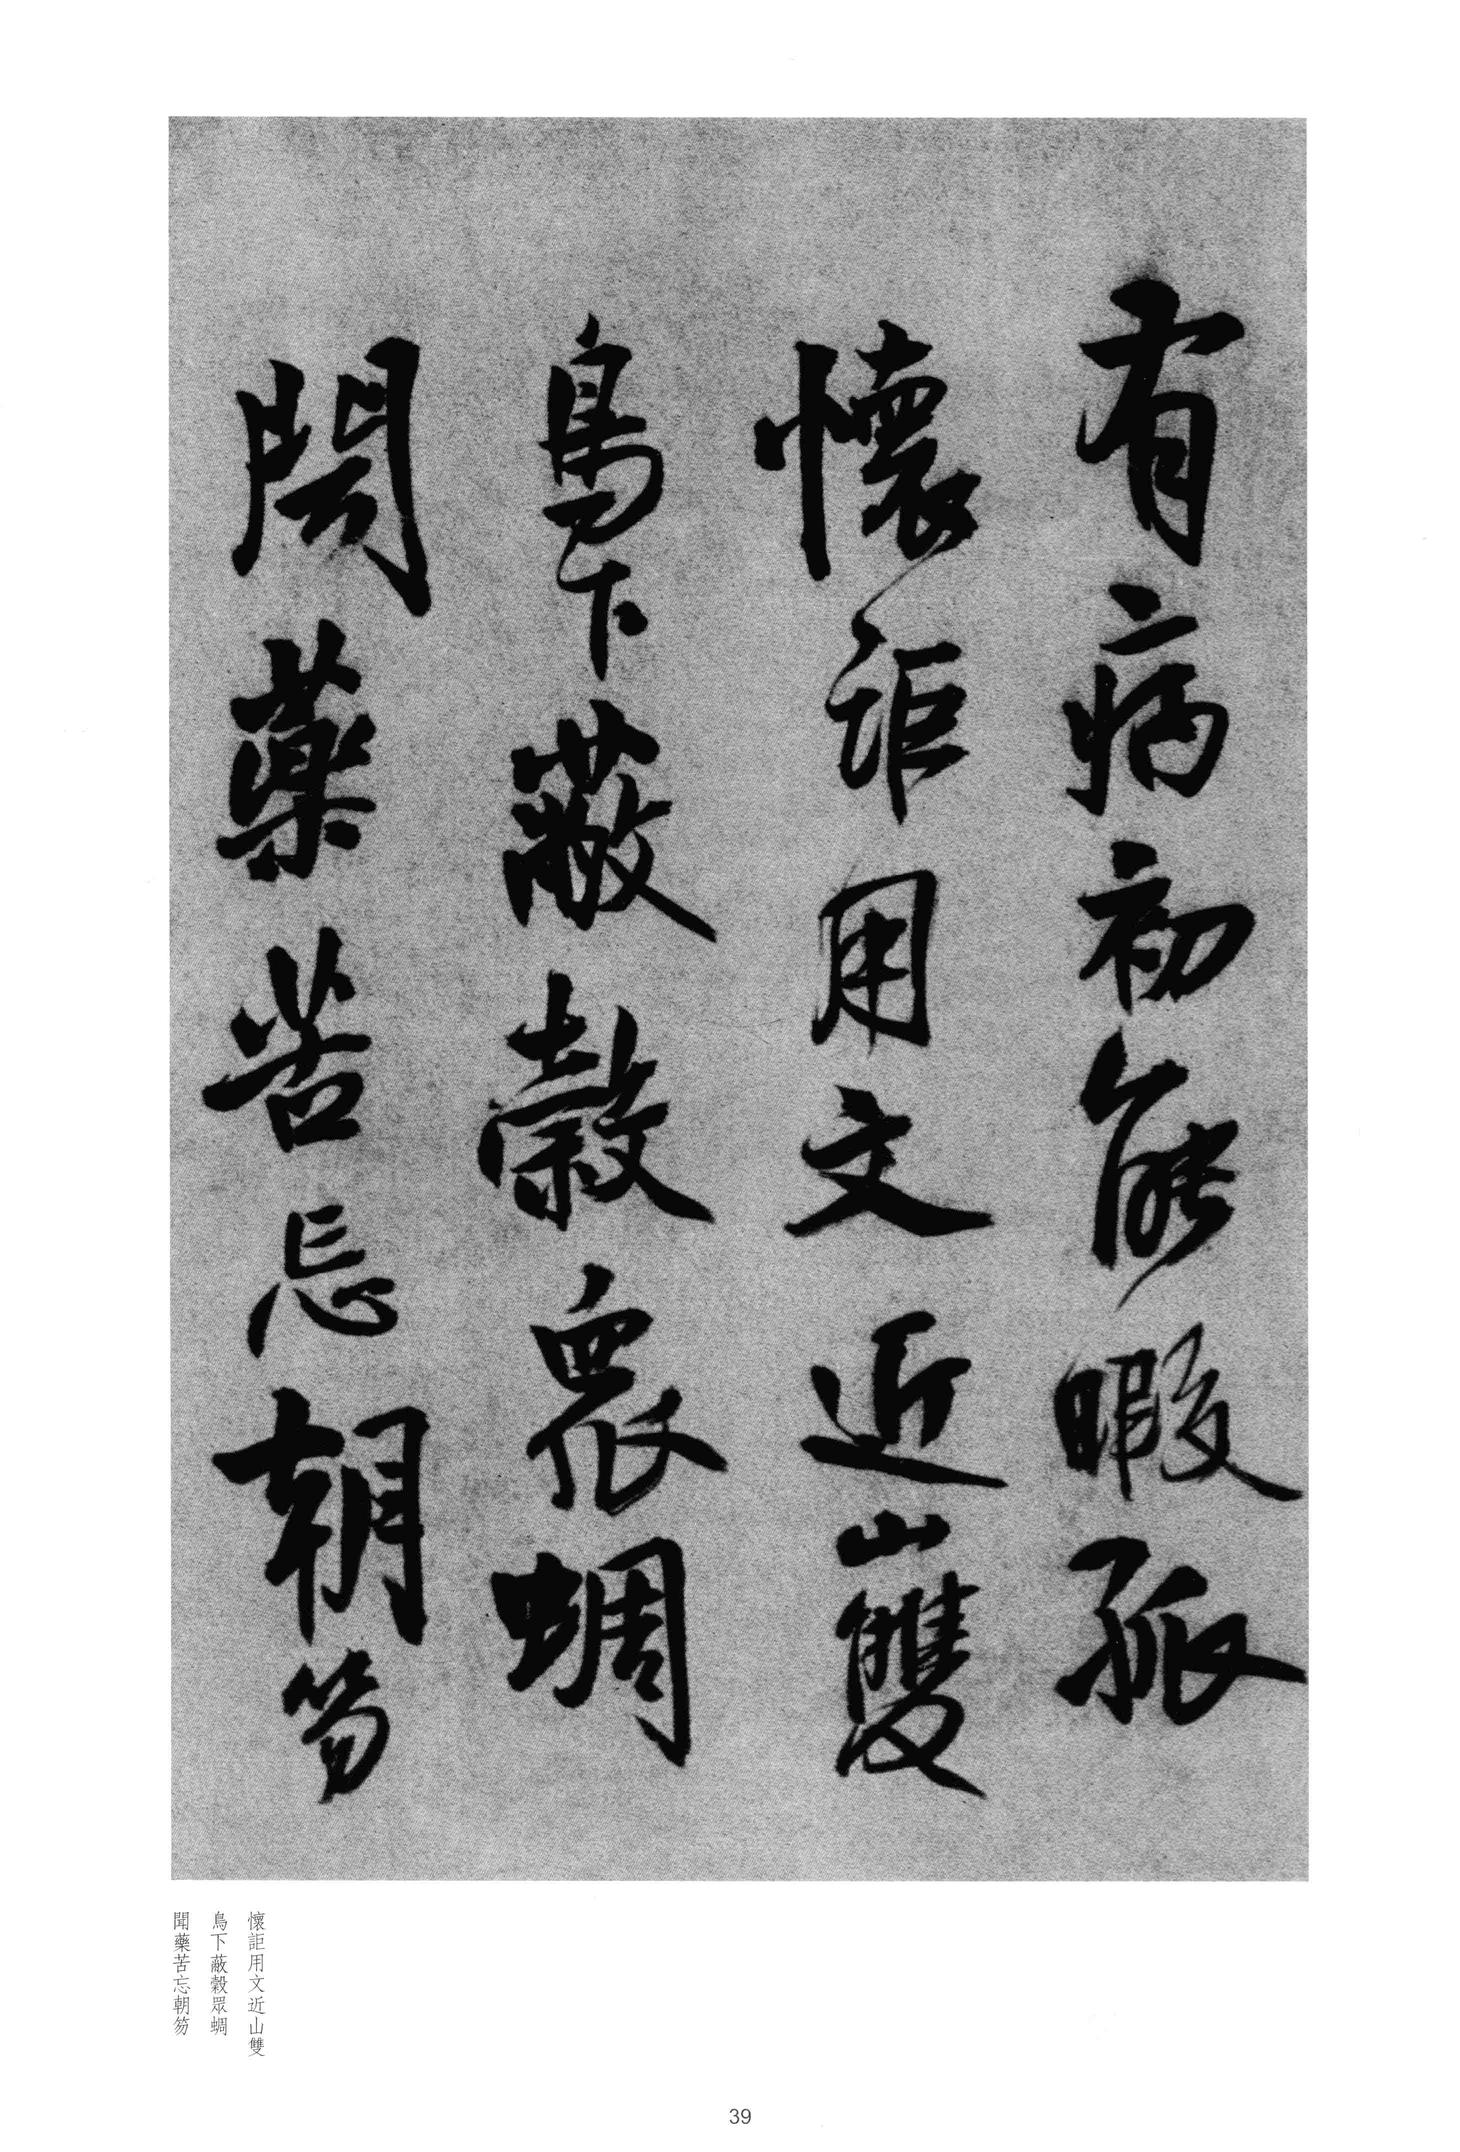 有病初能暇孤
懷詎用文近山雙
鳥下蔽穀眾蜩
聞藥苦忘朝笏
懷詎用文近山雙
鳥下蔽穀眾蜩
聞藥苦忘朝笏
39